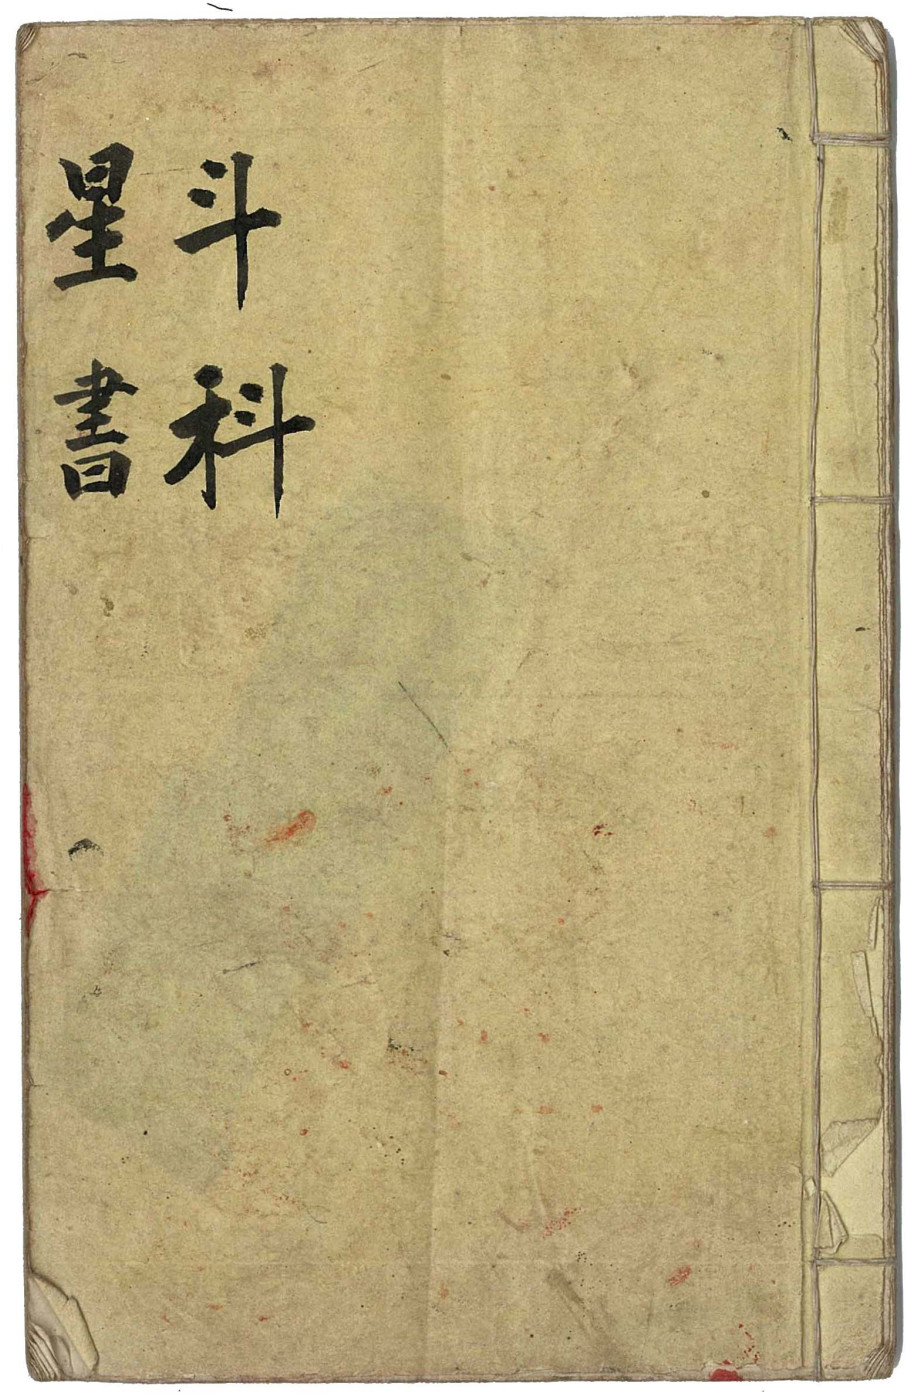 斗科
星書